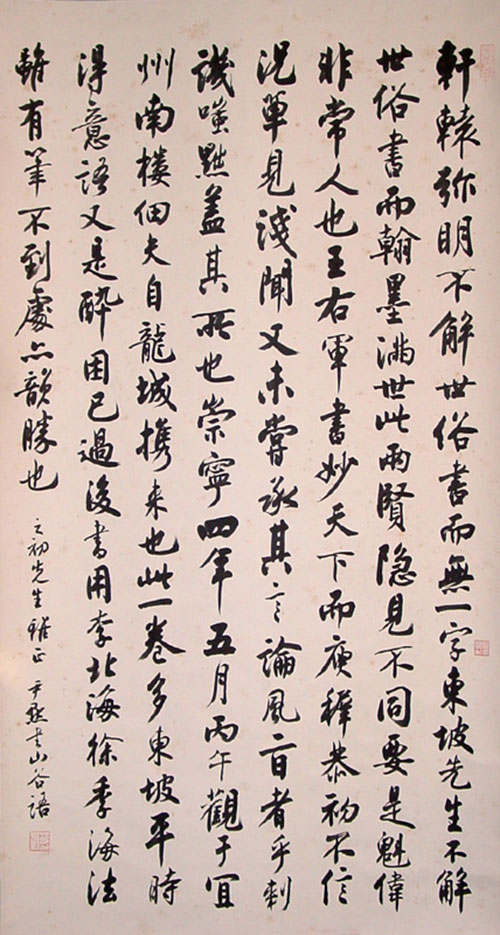 軒轅弥明不解世俗書而無一字東坡先生不解
世俗書而翰墨滿世此兩賢隐見不同要是魁偉
非常人也王右軍書妙天下而庾穉恭初不信
况單見淺聞又未嘗承其言論風旨者乎刺
譏嗤點盖其所也崇寧四年五月丙午觀于宜
州南樓佃夫自龍城攜来也此一卷多東坡平時
得意語又是醉困已過後書用李北海徐季海法
雖有筆不到處亦韻勝也
之初先生雅正 尹默書山谷語